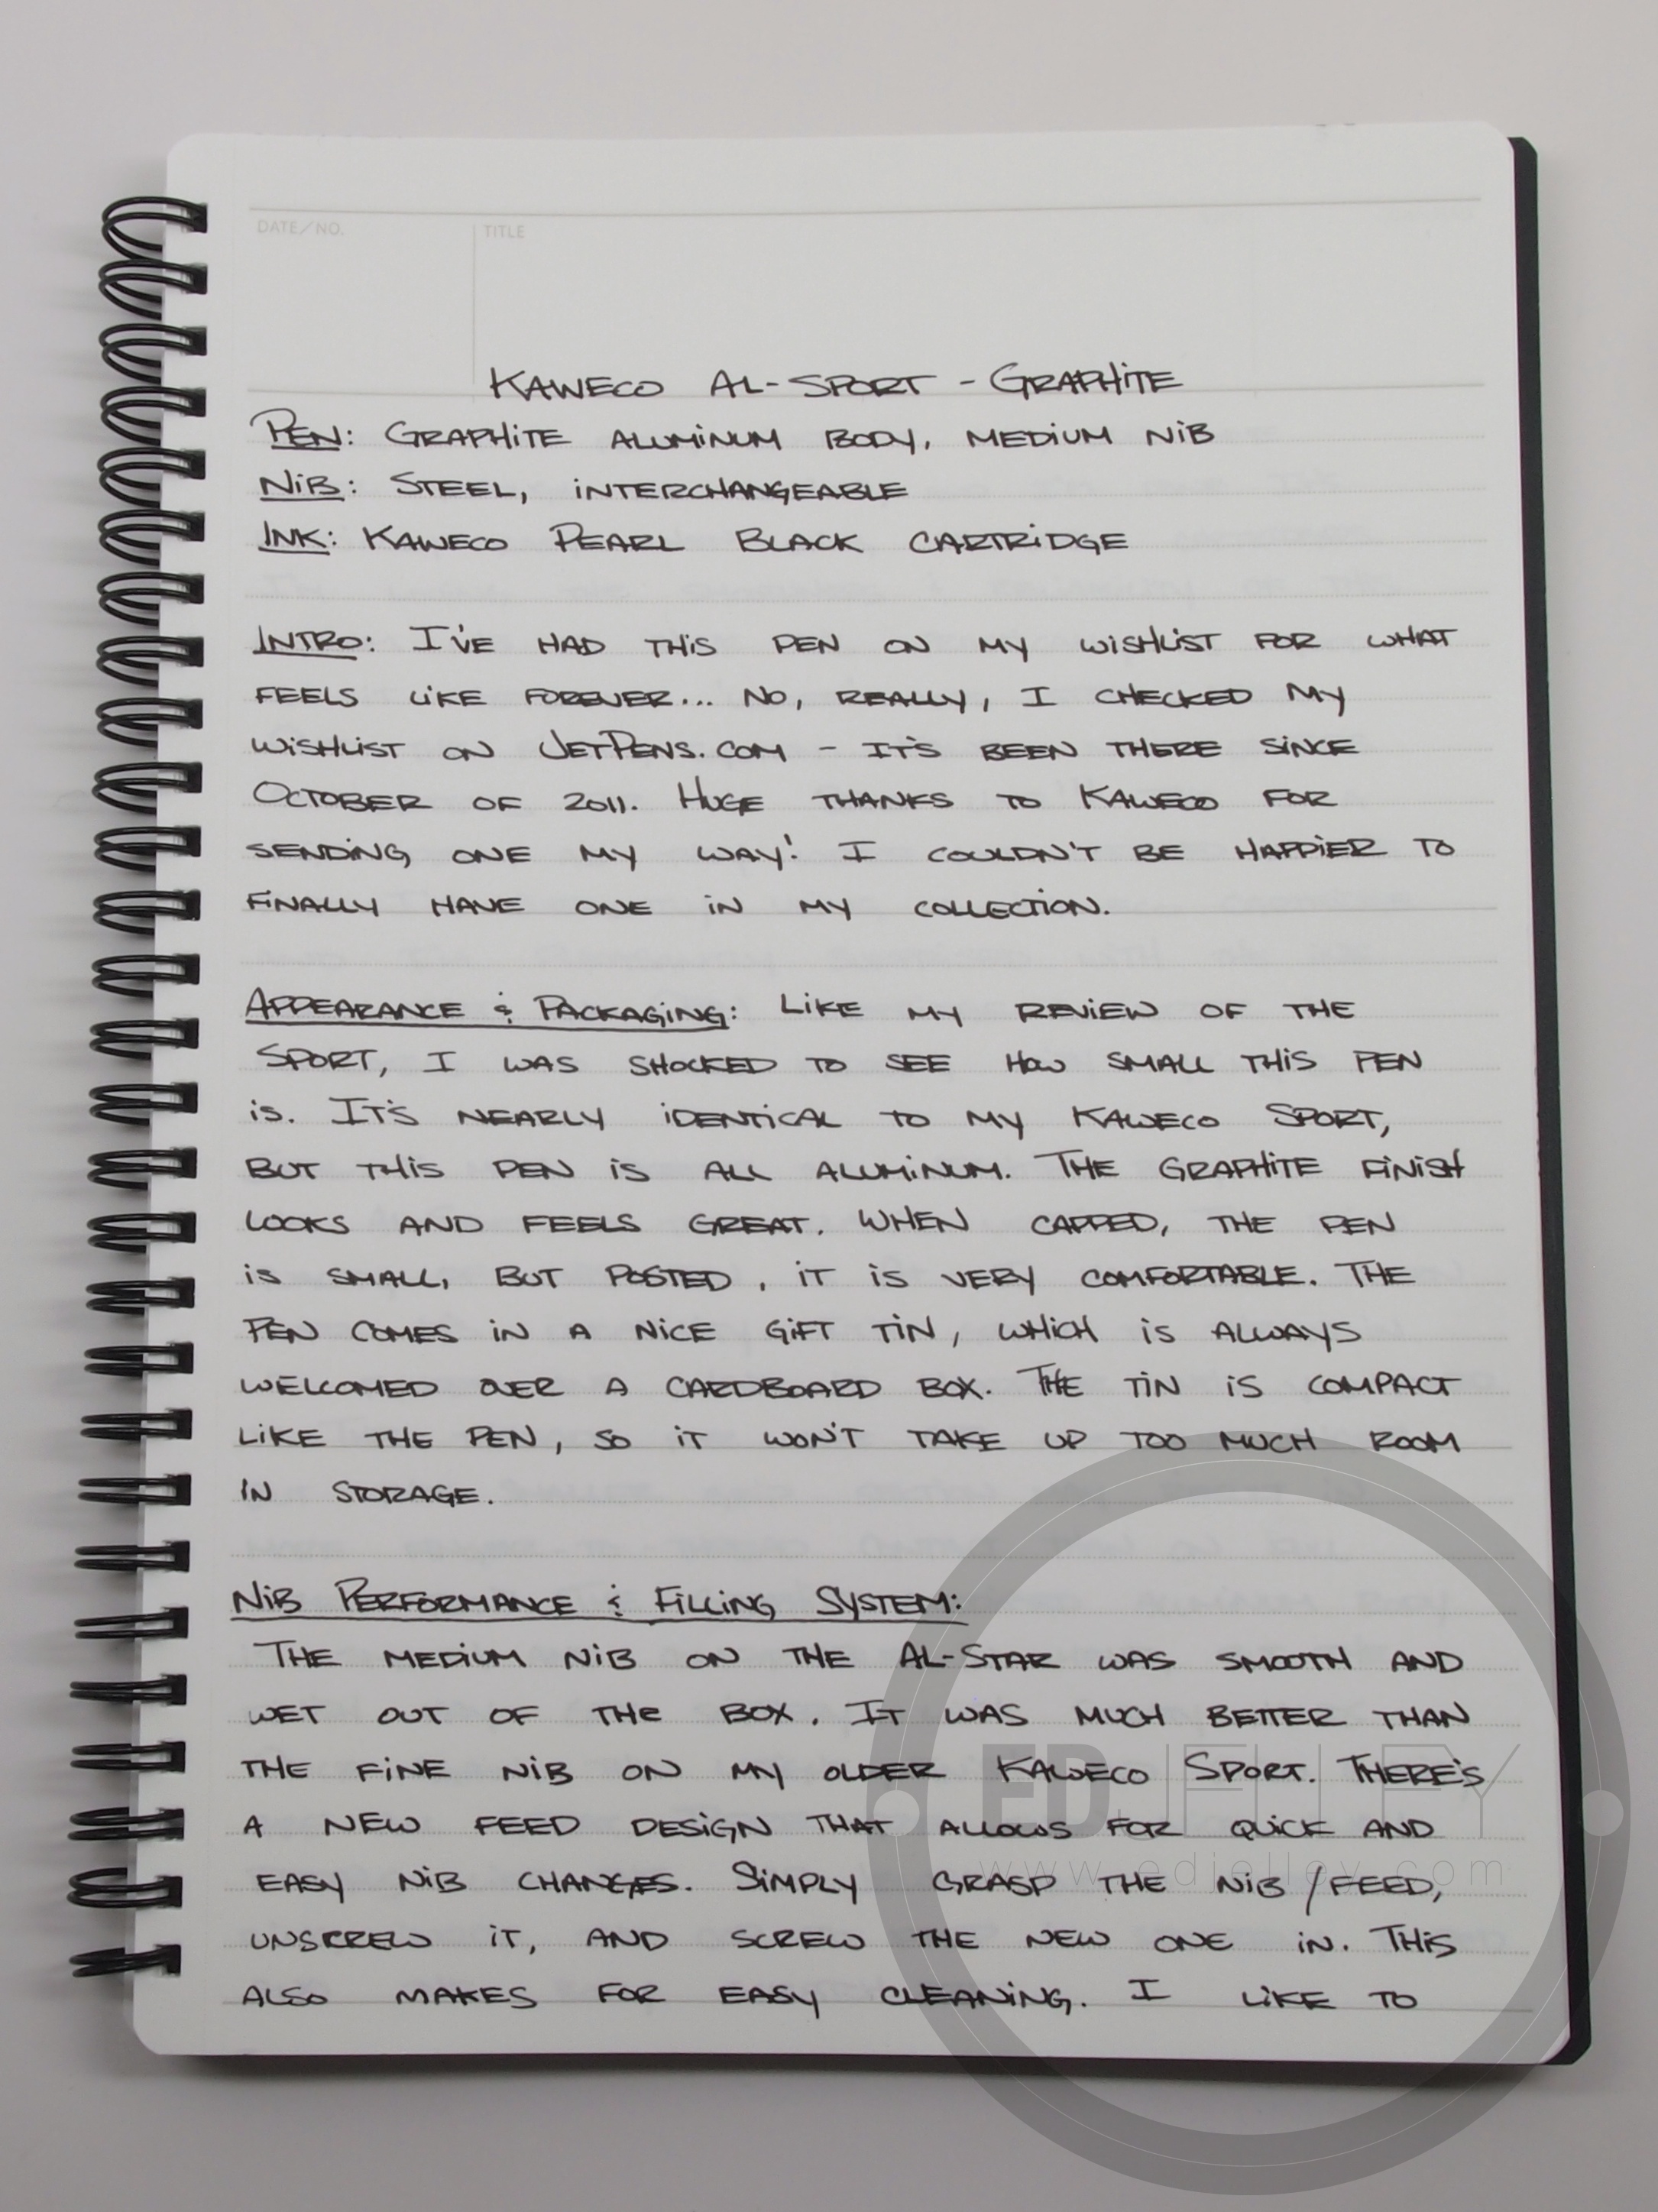 DATE/NO. TITLE
KAWECO AL-SPORT - GRAPHITE
PEN: GRAPHITE ALUMINUM BODY, MEDIUM NIB
NIB: STEEL, INTERCHANGEABLE
INK: KAWECO PEARL BLACK CARTRIDGE
INTRO: I'VE HAD THIS PEN ON MY WISHLIST FOR WHAT
FEELS LIKE FOREVER... NO, REALLY, I CHECKED MY
WISHLIST ON JETPENS.COM - IT'S BEEN THERE SINCE
OCTOBER OF 2011. HUGE THANKS TO KAWECO FOR
SENDING ONE MY WAY! I COULDN'T BE HAPPIER TO
FINALLY HAVE ONE IN MY COLLECTION.
APPEARANCE & PACKAGING: LIKE MY REVIEW OF THE
SPORT, I WAS SHOCKED TO SEE HOW SMALL THIS PEN
IS. IT'S NEARLY IDENTICAL TO MY KAWECO SPORT,
BUT THIS PEN IS ALL ALUMINUM. THE GRAPHITE FINISH
LOOKS AND FEELS GREAT. WHEN CAPPED, THE PEN
IS SMALL, BUT POSTED, IT IS VERY COMFORTABLE. THE
PEN COMES IN A NICE GIFT TIN, WHICH IS ALWAYS
WELCOMED OVER A CARDBOARD BOX. THE TIN IS COMPACT
LIKE THE PEN, SO IT WON'T TAKE UP TOO MUCH ROOM
IN STORAGE.
NIB PERFORMANCE & FILLING SYSTEM:
THE MEDIUM NIB ON THE AL-STAR WAS SMOOTH AND
WET OUT OF THE BOX. IT WAS MUCH BETTER THAN
THE FINE NIB ON MY OLDER KAWECO SPORT. THERE'S
A NEW FEED DESIGN THAT ALLOWS FOR QUICK AND
EASY NIB CHANGES. SIMPLY GRASP THE NIB/FEED,
UNSCREW IT, AND SCREW THE NEW ONE IN. THIS
ALSO MAKES FOR EASY CLEANING. I LIKE TO
ED JELLEY
www.edjelley.com